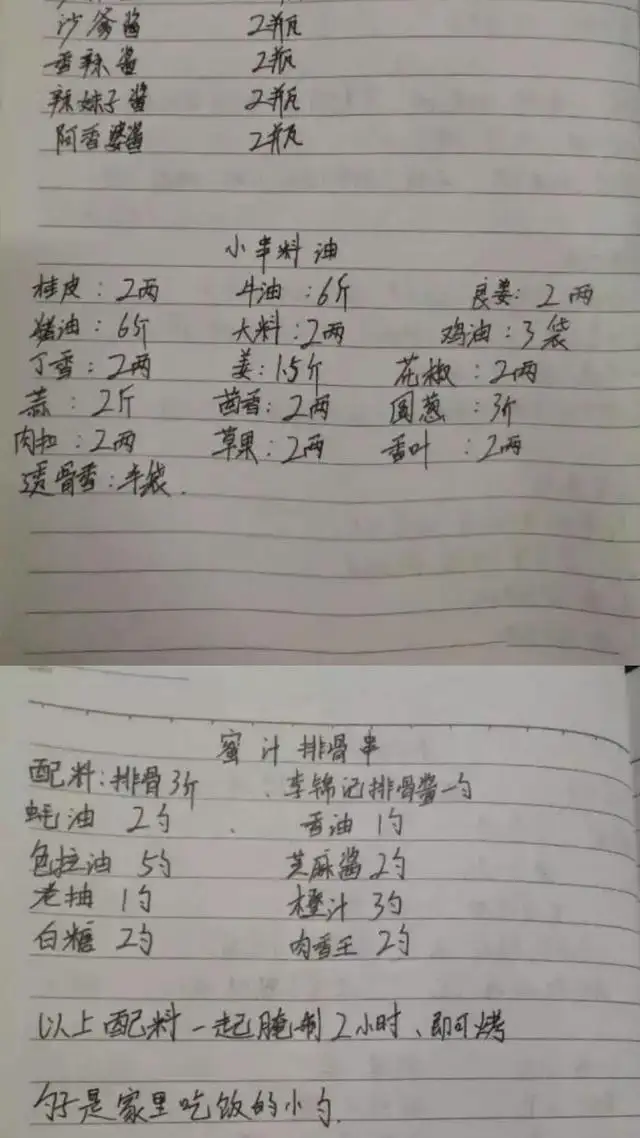 沙爹酱 2瓶
香辣酱 2瓶
辣妹子酱 2瓶
阿香婆酱 2瓶
小串料油
桂皮：2两 牛油：6斤 良姜：2两
猪油：6斤 大料：2两 鸡油：3袋
丁香：2两 姜：1.5斤 花椒：2两
蒜：2斤 茴香：2两 圆葱：3斤
肉扣：2两 草果：2两 香叶：2两
透骨香：半袋.
蜜汁排骨串
配料：排骨3斤 、李锦记排骨酱一勺
蚝油 2勺 . 香油 1勺
色拉油 5勺 芝麻酱 2勺
老抽 1勺 橙汁 3勺
白糖 2勺 肉香王 2勺
以上配料一起腌制2小时、即可烤
勺子是家里吃饭的小勺.